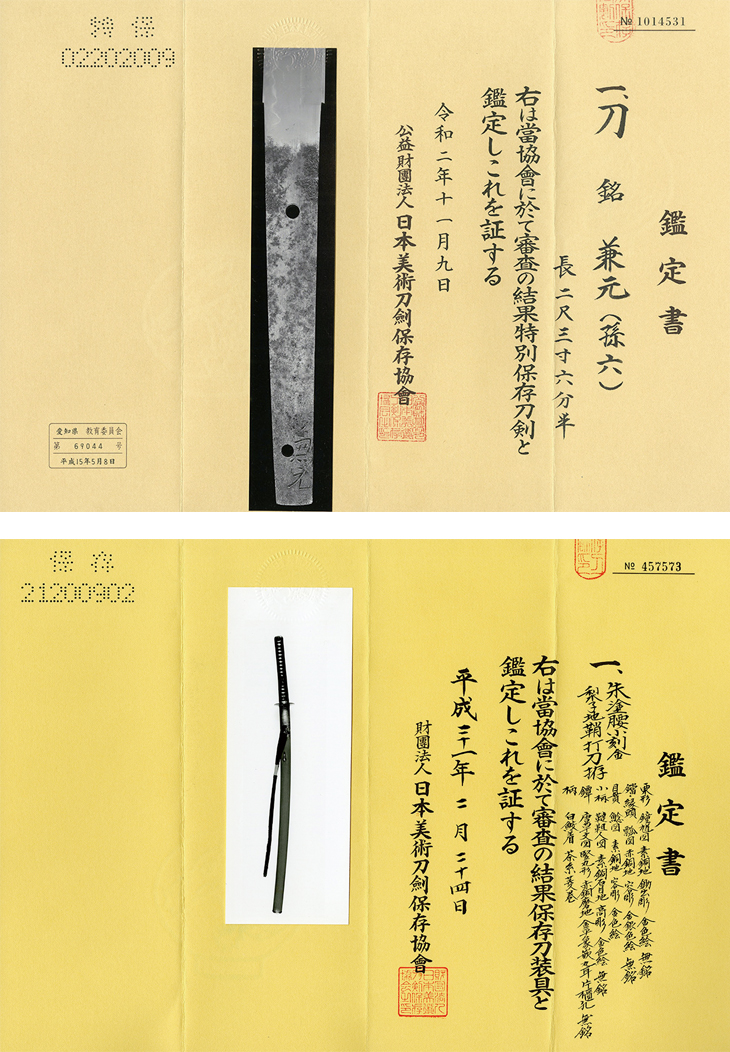 № 1014531
鑑定書
一、刀 銘 兼元(孫六)
長 二尺三寸六分半
右は當協會に於て審査の結果特別保存刀剣と
鑑定しこれを証する
令和二年十一月九日
公益財團法人 日本美術刀劍保存協會
特保
02202009
愛知県 教育委員会
第 69044 号
平成15年5月8日
№ 457573
鑑定書
一、朱塗腰小刻金
梨子地鞘打刀拵
無銘
無銘
目貫
金色絵 無銘
小柄
無銘
鐔
無銘
柄 白鮫着 茶糸菱巻
右は當協會に於て審査の結果保存刀装具と
鑑定しこれを証する
平成二十一年二月二十四日
財團法人 日本美術刀劍保存協會
保存
21200902